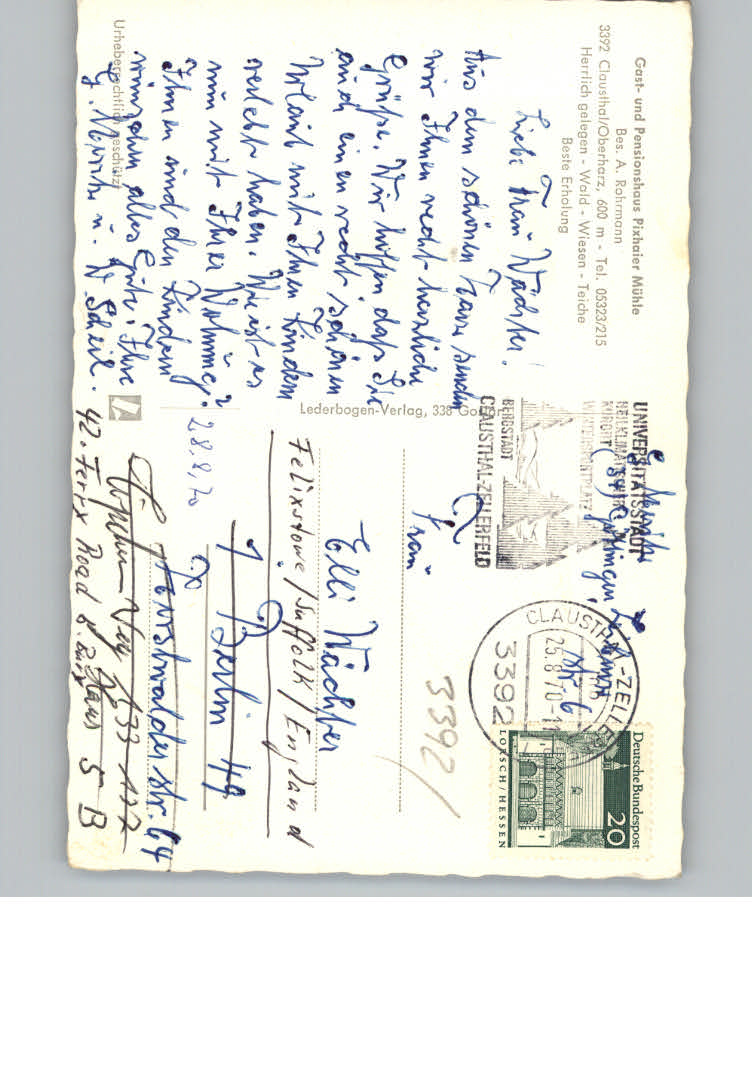 Gast- und Pensionshaus Pixhaier Mühle
Bes. A. Rohrmann
3392 Clausthal/Oberharz, 600 m - Tel. 05323/215
Herrlich gelegen - Wald - Wiesen - Teiche
Beste Erholung
Liebe Frau Wächter!
Aus dem schönen Harz senden
wir Ihnen recht herzliche
Grüße. Wir hoffen, daß Sie
auch einen recht schönen
Urlaub mit Ihren Kindern
verlebt haben. Wie ist es
nun mit Ihrer Wohnung?
Ihnen und den Kindern
wünschen alles Gute. Ihre
u. W. Scheil.
Urheberrechtlich geschützt
Lederbogen-Verlag, 338 Goslar
UNIVERSITÄTSSTADT
HEILKLIMATISCHER
KURORT
WINTERSPORTPLATZ
BERGSTADT
CLAUSTHAL-ZELLERFELD
(34) Göttingen,
Str. 6
CLAUSTHAL-ZELLERFELD
25.8.70-11
3392
Deutsche Bundespost
20
LORSCH/HESSEN
3392/
Frau
Elli Wächter
Felixstowe/Suffolk/England
1 Berlin 49
28.8.70
str. 64
133
42. Road
Haus 5 B